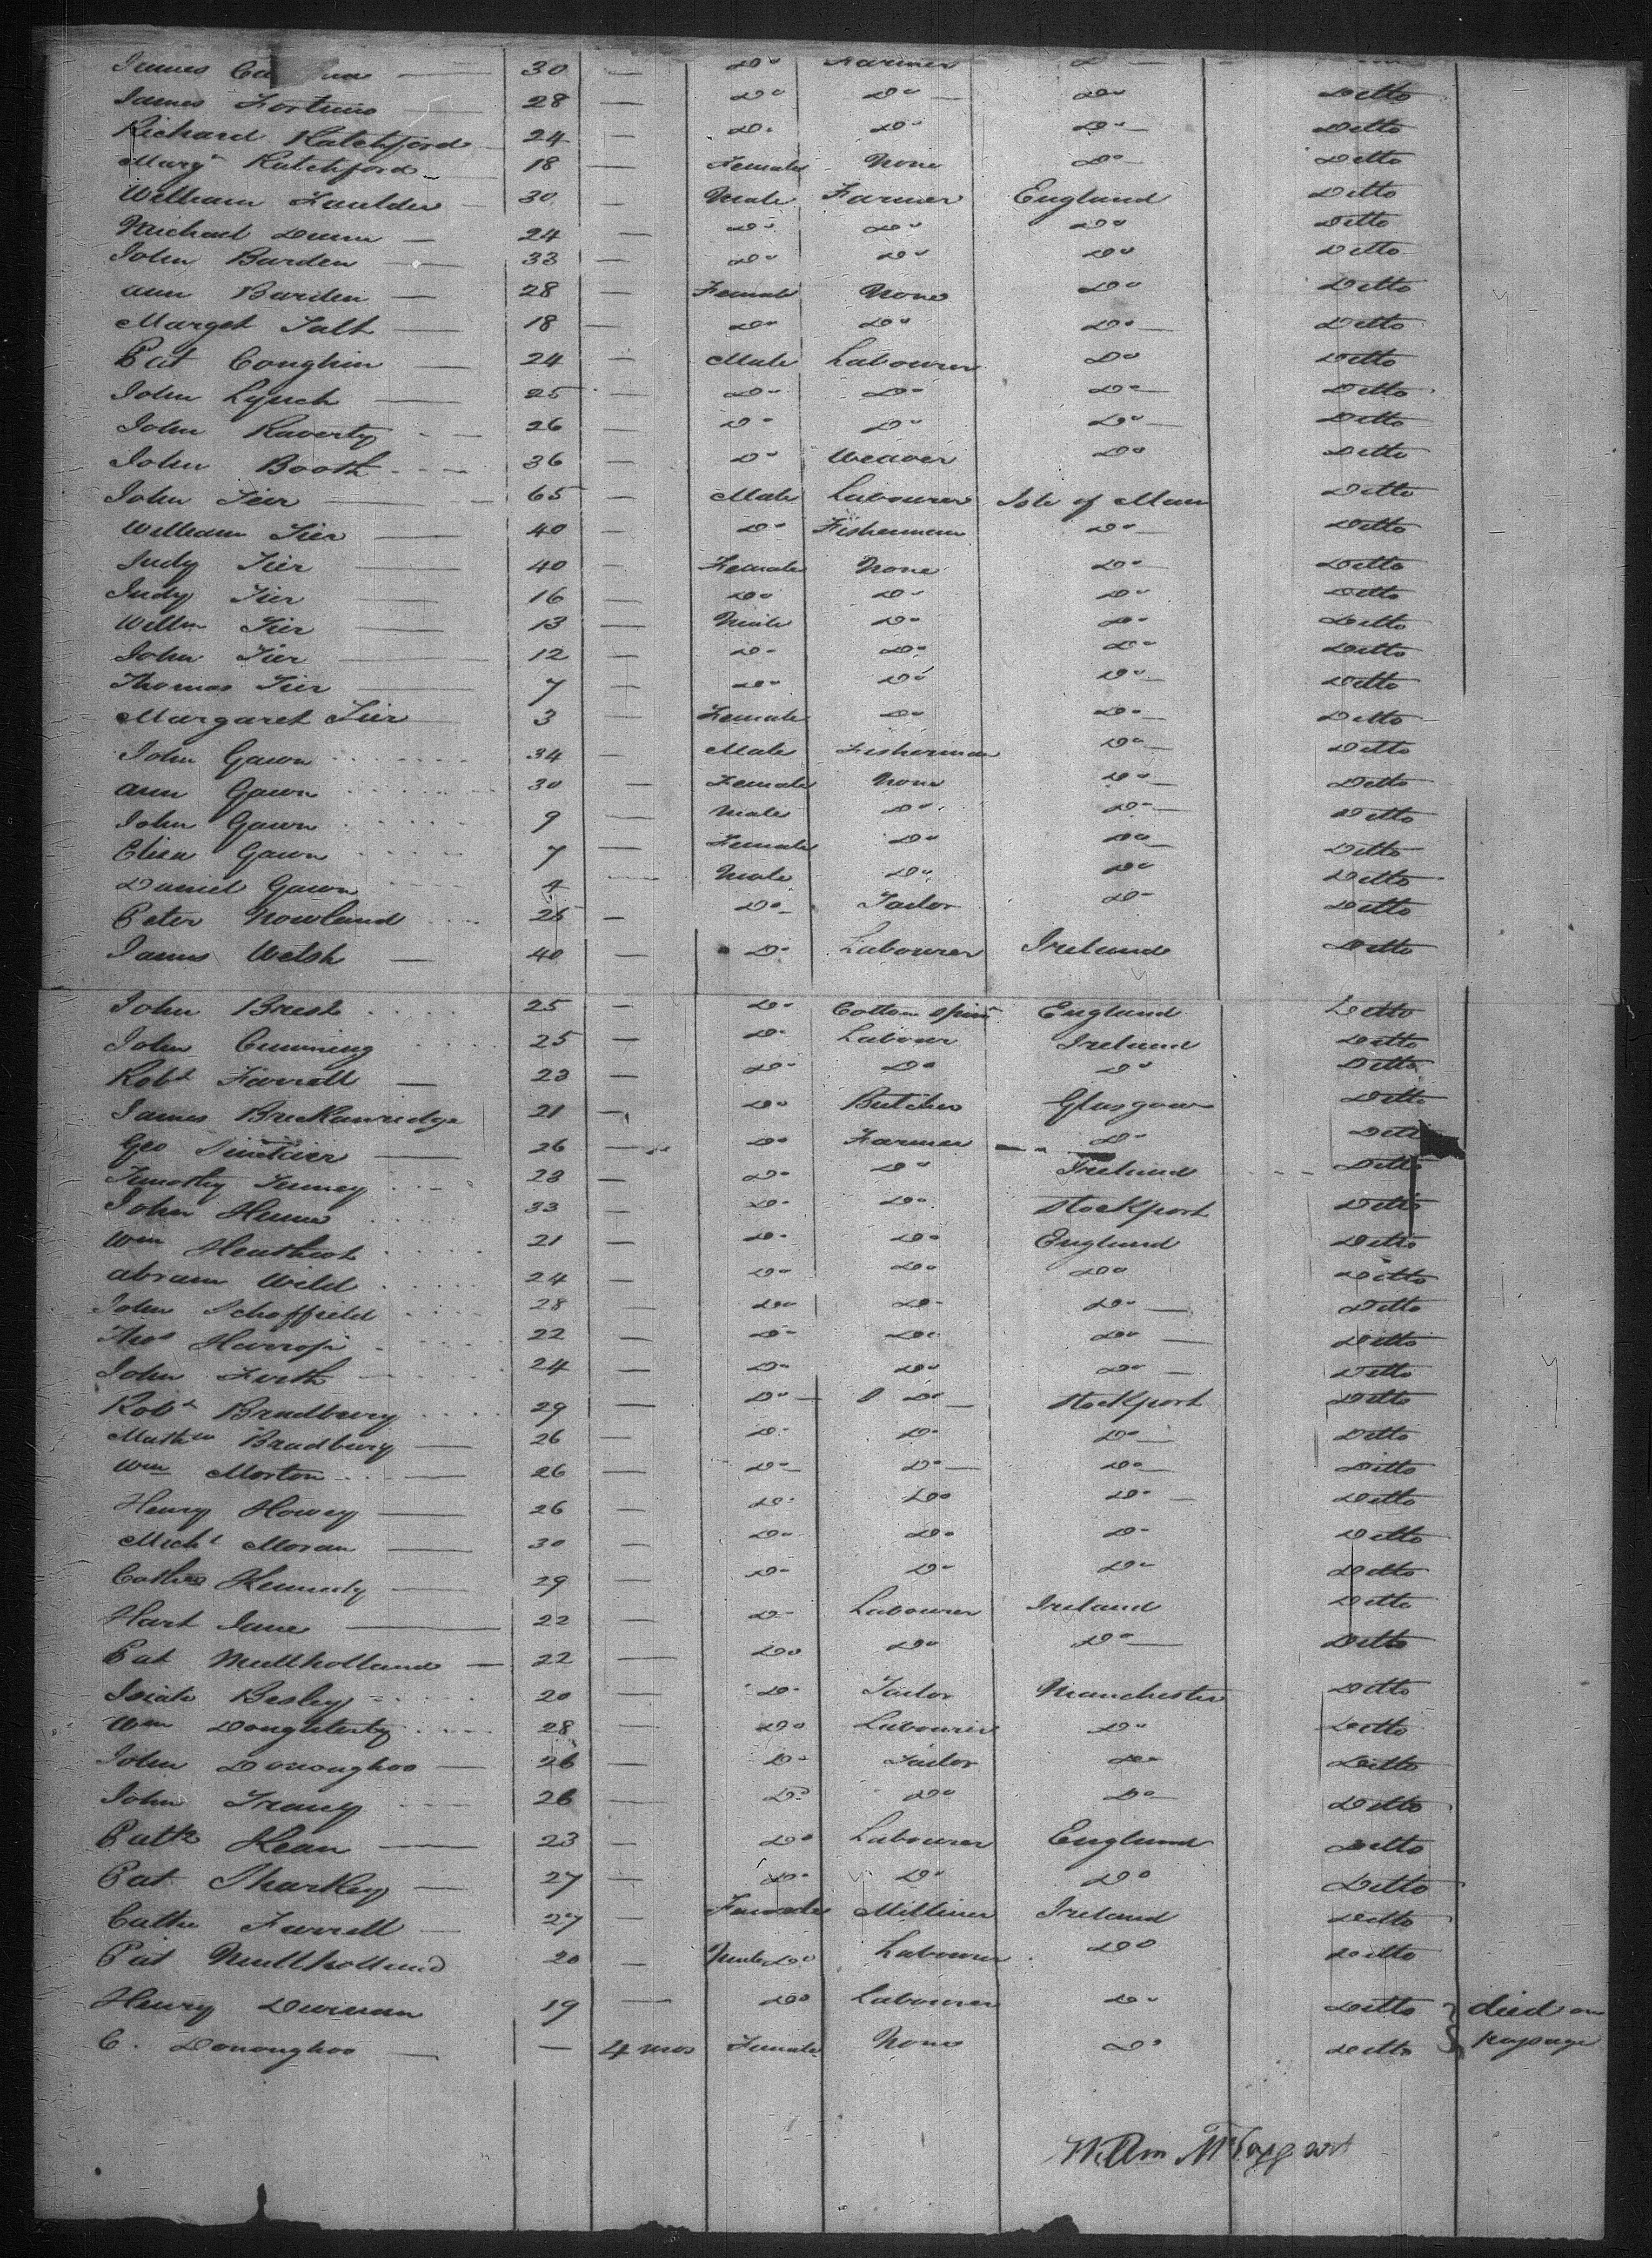 James 30 — Do Farmer Do
James Fortune 28 — Do Do Do Ditto
Richard Ratchford 24 — Do Do Do Ditto
Margt Ratchford 18 — Female None Do Ditto
William Faulder 30 — Male Farmer England Ditto
Michael Dunn 24 — Do Do Do Ditto
John Barden 33 — Do Do Do Ditto
Ann Barden 28 — Female None Do Ditto
Marget Salt 18 — Do Do Do Ditto
Pat Coughin 24 — Male Labourer Do Ditto
John Lynch 25 — Do Do Do Ditto
John Raverty 26 — Do Do Do Ditto
John Booth 36 — Do Weaver Do Ditto
John Tier 65 — Male Labourer Isle of Man Ditto
William Tier 40 — Do Fisherman Do Ditto
Judy Tier 40 — Female None Do Ditto
Judy Tier 16 — Do Do Do Ditto
Willm Tier 13 — Male Do Do Ditto
John Tier 12 — Do Do Do Ditto
Thomas Tier 7 — Do Do Do Ditto
Margaret Tier 3 — Female Do Do Ditto
John Gawn 34 — Male Fisherman Do Ditto
Ann Gawn 30 — Female None Do Ditto
John Gawn 9 — Male Do Do Ditto
Eliza Gawn 7 — Female Do Do Ditto
Daniel Gawn 4 — Male Do Do Ditto
Peter Nowland 25 — Do Tailor Do Ditto
James Welsh 40 — Do Labourer Ireland Ditto
John 25 — Do Cotton Spinr England Ditto
John Cumming 25 — Do Labour Ireland Ditto
Robt Farrell 23 — Do Do Do Ditto
James Breckanridge 21 — Do Butcher Glasgow Ditto
Geo Sinclair 26 — Do Farmer Do Ditto
Timothy Tenney 23 — Do Do Ireland Ditto
John Hume 33 — Do Do Stockport Ditto
Wm 21 — Do Do England Ditto
Abram Wild 24 — Do Do Do Ditto
John Schoffield 28 — Do Do Do Ditto
Thos Harrop 22 — Do Do Do Ditto
John Firth 24 — Do Do Do Ditto
Robt Bradbury 29 — Do Do Stockport Ditto
Mathw Bradbury 26 — Do Do Do Ditto
Wm Morton 26 — Do Do Do Ditto
Henry Howey 26 — Do Do Do Ditto
Michl Moran 30 — Do Do Do Ditto
Kennedy 29 — Do Do Do Ditto
Hart Jane 22 — Do Labourer Ireland Ditto
Pat Mullholland 22 — Do Do Do Ditto
Isiah Besley 20 — Do Tailor Manchester Ditto
Wm Doughterty 28 — Do Labourer Do Ditto
John Donoughoo 26 — Do Tailor Do Ditto
John 26 — Do Do Do Ditto
Patk Kean 23 — Do Labourer England Ditto
Pat Sharkey 27 — Do Do Do Ditto
Cathe Farrell 27 — Female Milliner Ireland Ditto
Pat Mullholland 20 — Male Do Labourer Do Ditto
Henry Durnan 19 — Do Labourer Do Ditto } died on
C. Donoughoo — 4 mos Female None Do Ditto } passage
William McTaggart